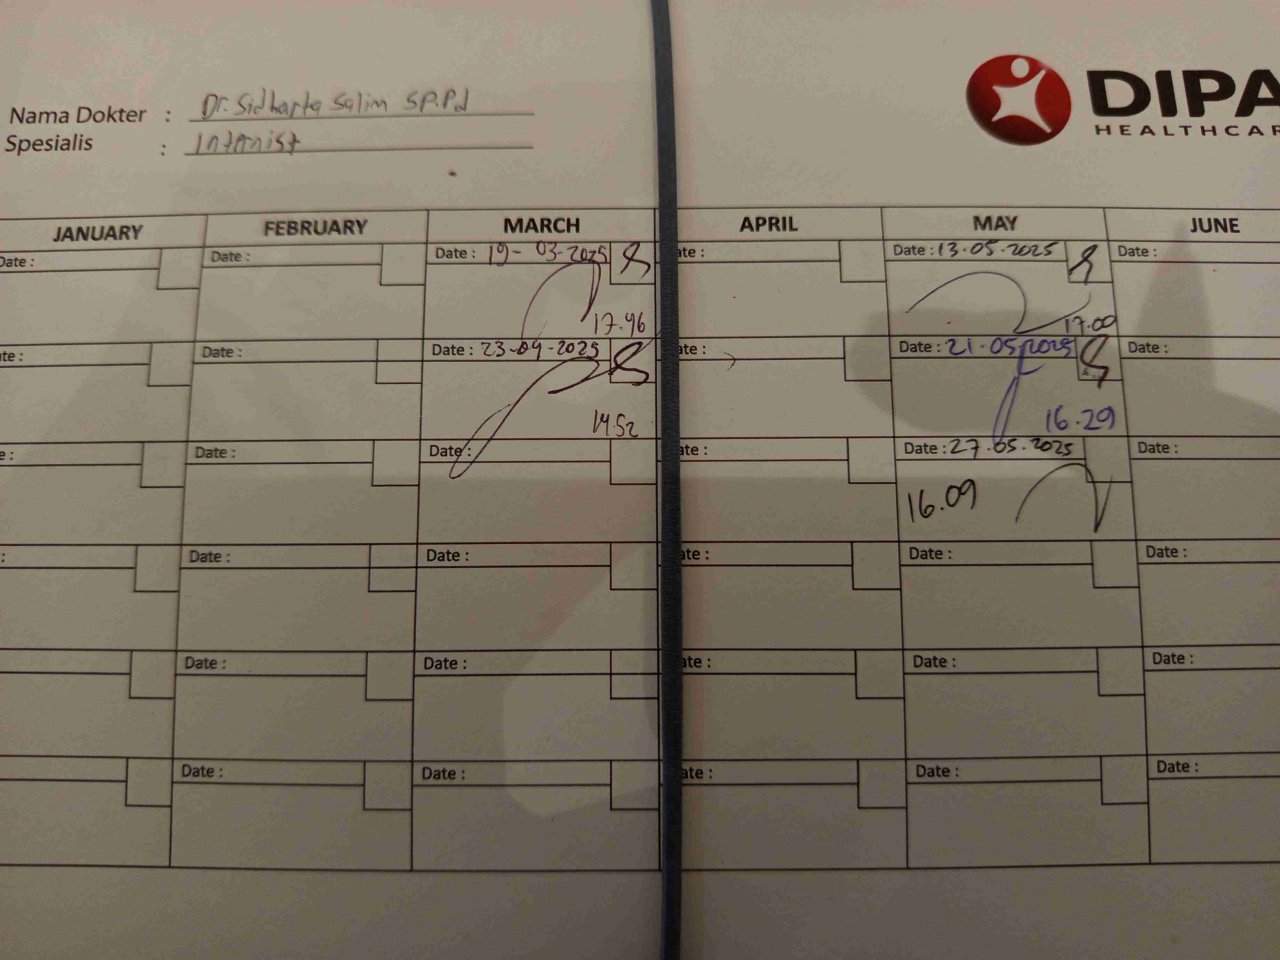 Nama Dokter : Dr. Sidharta Salim SP.Pd
Spesialis : Intanist
DIPA
HEALTHCAR
JANUARY FEBRUARY MARCH APRIL MAY JUNE
Date : Date : Date : 19-03-2025 ate : Date : 13-05-2025 Date :
17.46 17.00
te : Date : Date : 23-04-2025 ate : Date : 21-05-2025 Date :
14.52 16.29
e : Date : Date : ate : Date : 27-05-2025 Date :
16.09
: Date : Date : ate : Date : Date :
Date : Date : ate : Date : Date :
Date : Date : ate : Date : Date :